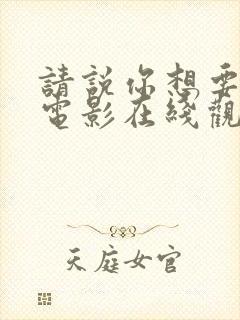 請說你想要
電影在綫觀
天庭女官